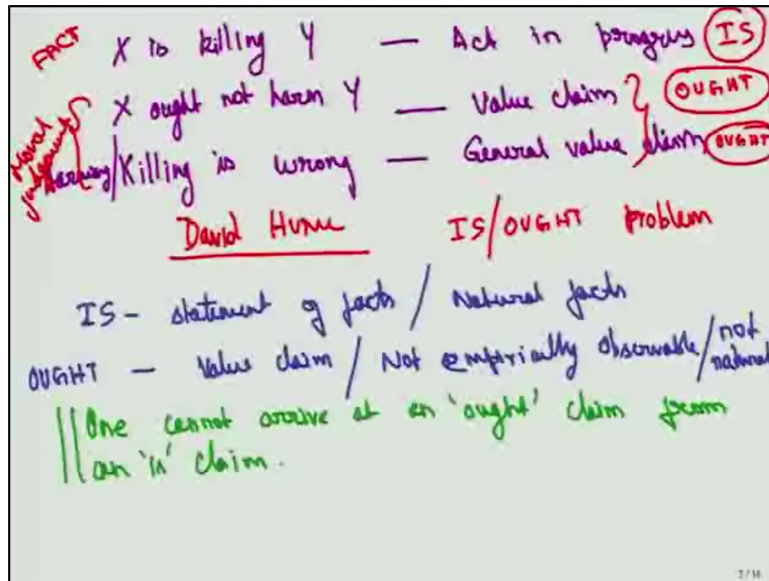 FACT X is killing Y — Act in progress IS
X ought not harm Y — Value claim OUGHT
Moral Judgements
Harming/Killing is wrong — General value claim OUGHT
David Hume IS/OUGHT problem
IS - statement of facts / Natural facts
OUGHT — Value claim / Not empirically observable / not natural
One cannot arrive at an 'ought' claim from
an 'is' claim.